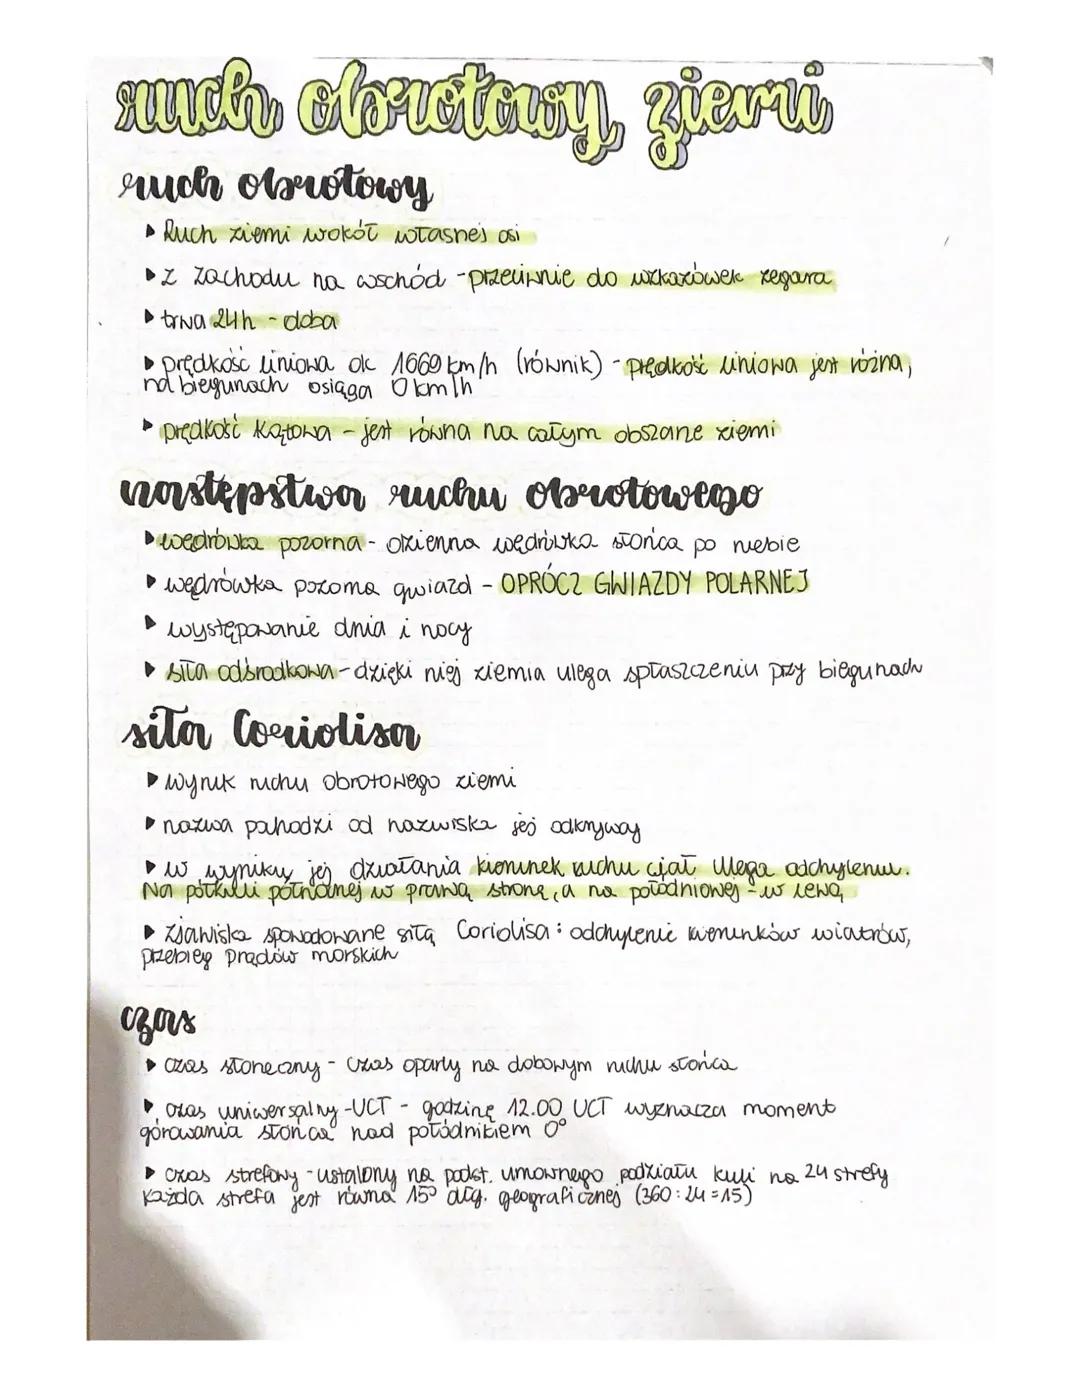 ruch obrotowy ziemi
ruch obrotowy
▸ Ruch ziemi wokół własnej osi
▸ z zachodu na wschód - przeciwnie do wskazówek zegara
▸ trwa 24h - doba
▸ prędkość liniowa ok 1669 km/h (równik) - prędkość liniowa jest różna,
na biegunach osiąga 0 km/h
▸ prędkość kątowa - jest równa na całym obszarze ziemi
następstwa ruchu obrotowego
▸ wędrówka pozorna - dzienna wędrówka słońca po niebie
▸ wędrówka pozorna gwiazd - OPRÓCZ GWIAZDY POLARNEJ
▸ występowanie dnia i nocy
▸ siła odśrodkowa - dzięki niej ziemia ulega spłaszczeniu przy biegunach
siła Coriolisa
▸ wynik ruchu obrotowego ziemi
▸ nazwa pochodzi od nazwiska jej odkrywcy
▸ w wyniku jej działania kierunek ruchu ciał ulega odchyleniu.
Na półkuli północnej w prawą stronę, a na południowej - w lewą
▸ zjawiska spowodowane siłą Coriolisa: odchylenie kierunków wiatrów,
przebieg prądów morskich
czas
▸ czas słoneczny - czas oparty na dobowym ruchu słońca
▸ czas uniwersalny - UCT - godzinę 12.00 UCT wyznacza moment
górowania słońca nad południkiem 0°
▸ czas strefowy - ustalony na podst. umownego podziału kuli na 24 strefy
każda strefa jest równa 15° dłg. geograficznej (360:24=15)